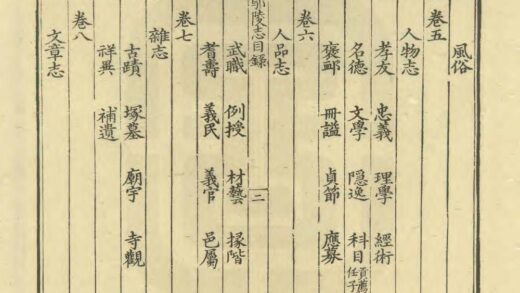 風俗
卷五
人物志
孝友 忠義 理學 經術
名德 文學 隱逸 科目 貢薦 任子
褒䘏 冊諡 貞節 應募
卷六
人品志
鄢陵志目錄 二
武職 例授 材藝 掾階
耆壽 義民 義官 邑屬
卷七
雜志
古蹟 塚墓 廟宇 寺觀
祥異 補遺
卷八
文章志